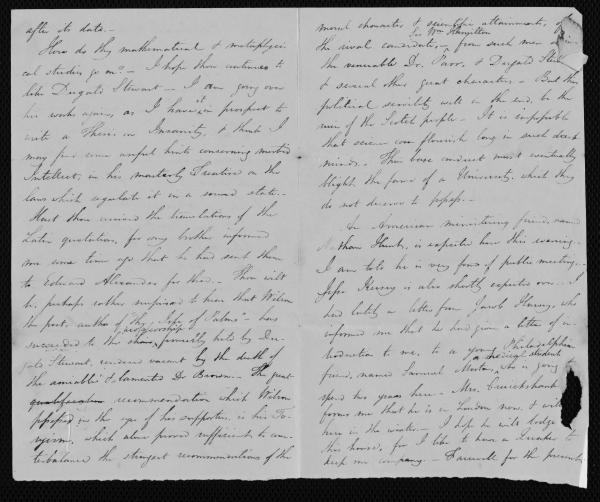 after its date. —
How do thy mathematical & metaphysi-
cal studies go on? — I hope thou continues to
like Dugald Stewart — I am going over
his works again, as I have it in prospect to
write a Thesis on Insanity, & think I
may find some useful hints concerning morbid
Intellect, in his masterly Treatise on the
laws which regulate it in a sound state. —
Hast thou received the translations of the
Latin quotations, for my brother informed
me some time ago that he had sent them
to Edward Alexander for thee. — Thou wilt
be, perhaps rather surprised to hear that Wilson
the poet, author of "the Isle of Palms" — has
succeeded to the professorship formerly held by Du-
gald Stewart, rendered vacant by the death of
the amiable & lamented Dr Brown — The great
qualification recommendation which Wilson
possessed in the eyes of his supporters, is his To-
ryism, which alone proved sufficient to coun-
terbalance the strongest recommendations of the
moral character & scientific attainments, of
the rival candidate, Sir Wm Hamilton from such men as
the venerable Dr. Parr, & Dugald Stewart
& several other great characters — But this
political servility will in the end, be the
ruin of the Scotch people — It is impossible
that science can flourish long in such
minds. — Their base conduct must eventually
blight the fame of a University, which they
do not deserve to possess. —
An American ministering friend, named
Nathan Hunt, is expected here this evening. —
I am told he is very fond of public meetings. —
Jesse Hersey is also shortly expected over. — I
had lately a letter from Jacob Harvey, who
informed me that he had given a letter of in-
troduction to me, to a young Philadelphia
friend, named Samuel Morton, a medical student who is going to
spend two years here — Mrs. Cruickshank in-
forms me that he is in London now, & will be
here in the winter — I hope he will lodge
this house, for I like to have a Quaker to
keep me company. — Farewell for the present